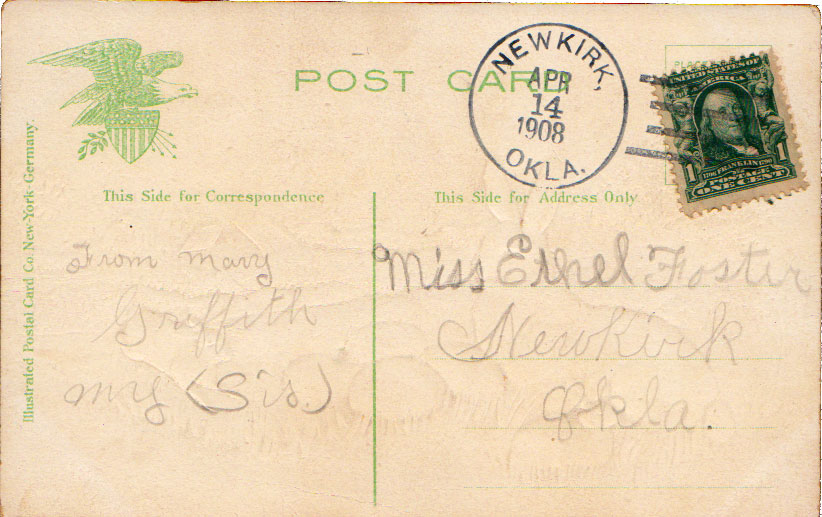 POST CARD
NEWKIRK,
APR
14
1908
OKLA.
UNITED STATES
OF AMERICA
1706 FRANKLIN 1790
1 POSTAGE 1
ONE CENT
This Side for Correspondence
This Side for Address Only
Illustrated Postal Card Co. New-York-Germany.
From Mary
Griffith
my (Sis.)
Miss Ethel Foster
Newkirk
Okla.